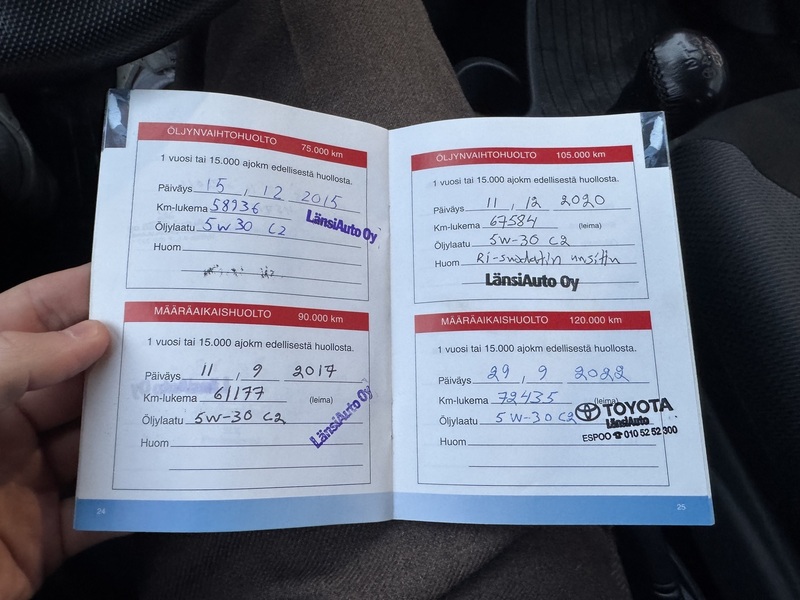 ÖLJYNVAIHTOHUOLTO 75.000 km
1 vuosi tai 15.000 ajokm edellisestä huollosta.
Päiväys 15 . 12 2015
Km-lukema 58936
LänsiAuto Oy
Öljylaatu 5W30 C2
Huom
MÄÄRÄAIKAISHUOLTO 90.000 km
1 vuosi tai 15.000 ajokm edellisestä huollosta.
Päiväys 11 . 9 2017
Km-lukema 61177 (leima)
LänsiAuto Oy
Öljylaatu 5W-30 C2
Huom
24
ÖLJYNVAIHTOHUOLTO 105.000 km
1 vuosi tai 15.000 ajokm edellisestä huollosta.
Päiväys 11 . 12 2020
Km-lukema 67584 (leima)
Öljylaatu 5W-30 C2
Huom Ri-suodatin uusittu
LänsiAuto Oy
MÄÄRÄAIKAISHUOLTO 120.000 km
1 vuosi tai 15.000 ajokm edellisestä huollosta.
Päiväys 29 . 9 2022
Km-lukema 72435 (leima)
Öljylaatu 5W-30 C2
TOYOTA
LänsiAuto
ESPOO ☎ 010 52 52 300
Huom
25